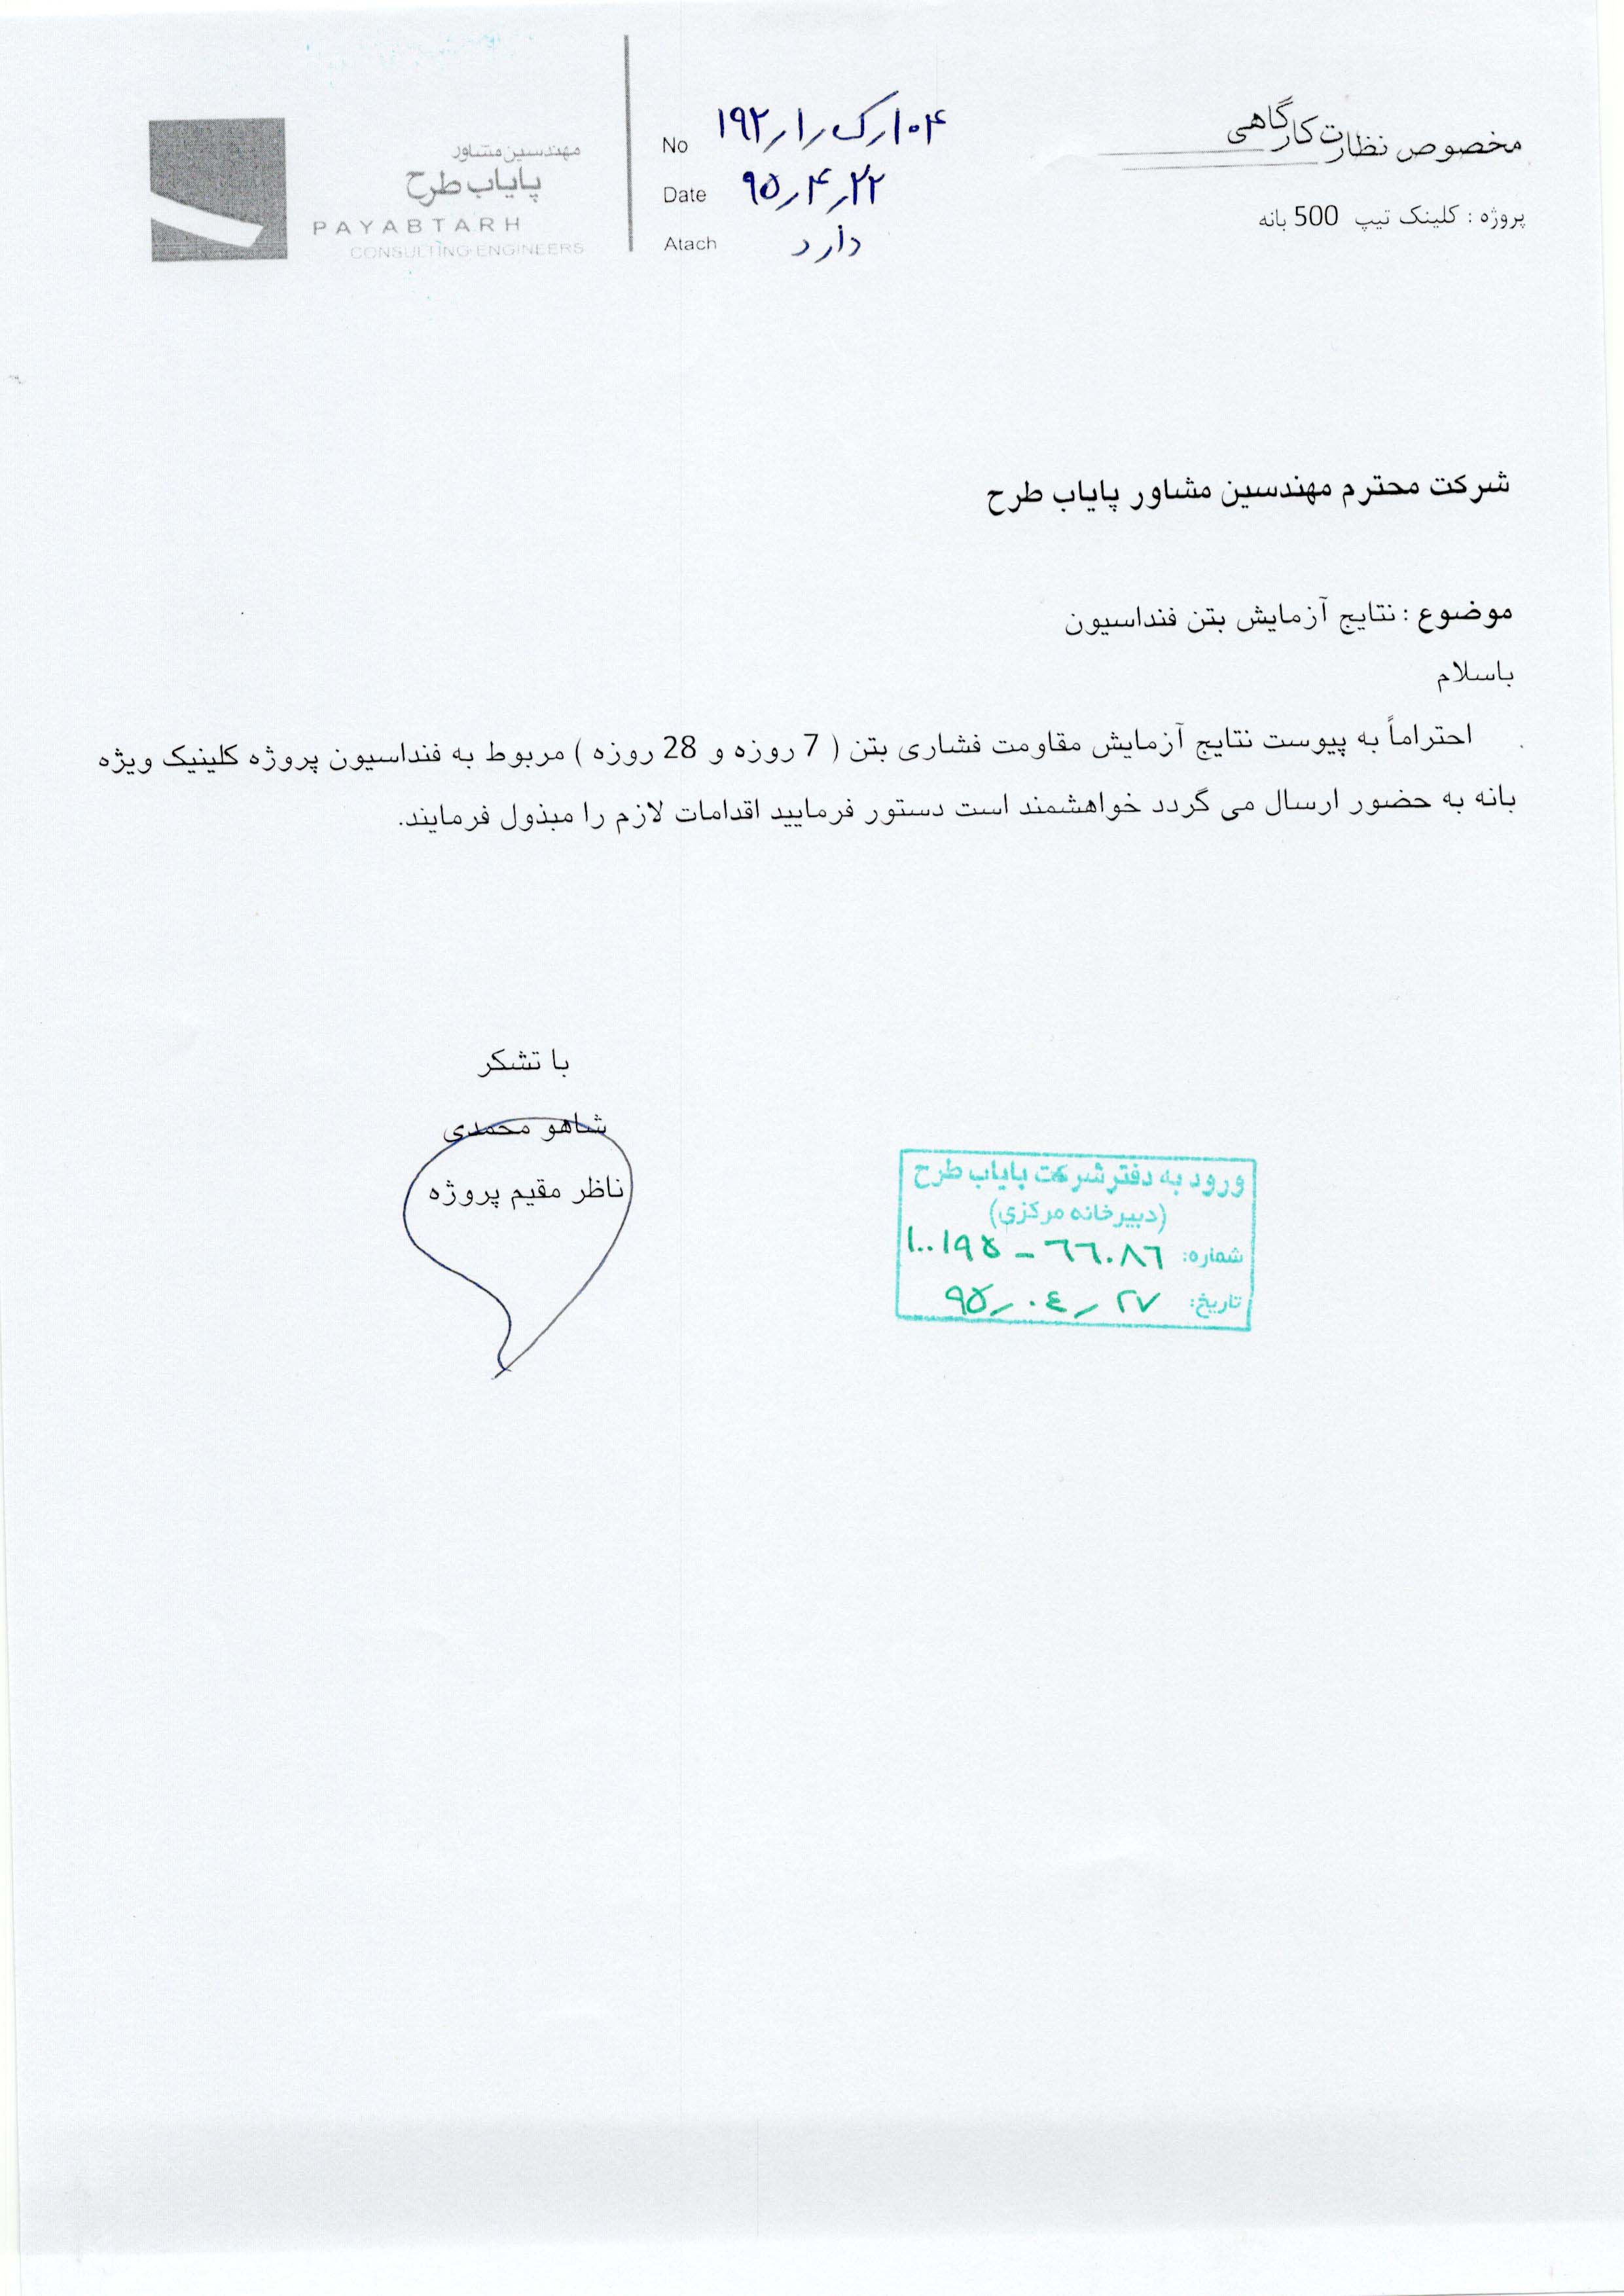 مخصوص نظارت کارگاهی
پروژه : کلینک تیپ 500 بانه
No ۱۰۴رک را ر۱۹۲
Date ۹۵٫۴٫۲۲
Atach دارد
مهندسین مشاور
پایاب طرح
PAYABTARH
CONSULTING ENGINEERS
شرکت محترم مهندسین مشاور پایاب طرح
موضوع : نتایج آزمایش بتن فنداسیون
باسلام
احتراماً به پیوست نتایج آزمایش مقاومت فشاری بتن ( 7 روزه و 28 روزه ) مربوط به فنداسیون پروژه کلینیک ویژه
بانه به حضور ارسال می گردد خواهشمند است دستور فرمایید اقدامات لازم را مبذول فرمایند.
با تشکر
شاهو محمدی
ناظر مقیم پروژه
ورود به دفتر شرکت پایاب طرح
(دبیرخانه مرکزی)
شماره: ۱۰۰۱۹۵ - ۶۶۰۸۶
تاریخ: ۹۵٫۰۴٫۲۷